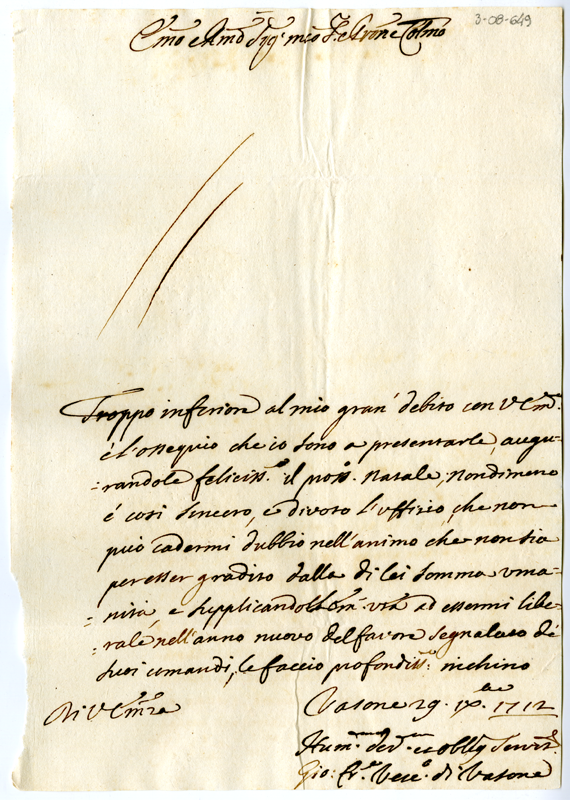 3-08-649
Em̃o e Rmõ Sigr. mio Pr̃one Colmõ
Troppo inferiore al mio gran' debito con V Emã.
è l'ossequio che io sono a presentarle, augu-
:randole feliciss.mo il pross. Natale, nondimeno
é cosi sincero, e divoto l'uffizio, che non
può cadermi dubbio nell'animo che non sia
per esser gradito dalla di lei somma uma-
:nità, e supplicandola Em. Vrã ad essermi libe-
:rale nell'anno nuovo del favore segnalato de'
suoi comandi, le faccio profondiss.o inchino
Di V Em̃za
Vasone 29. 9bre 1712
Hum.mo dev.mo et oblig. Servit.e
Gio: Fr.o Vesc.o di Vasone